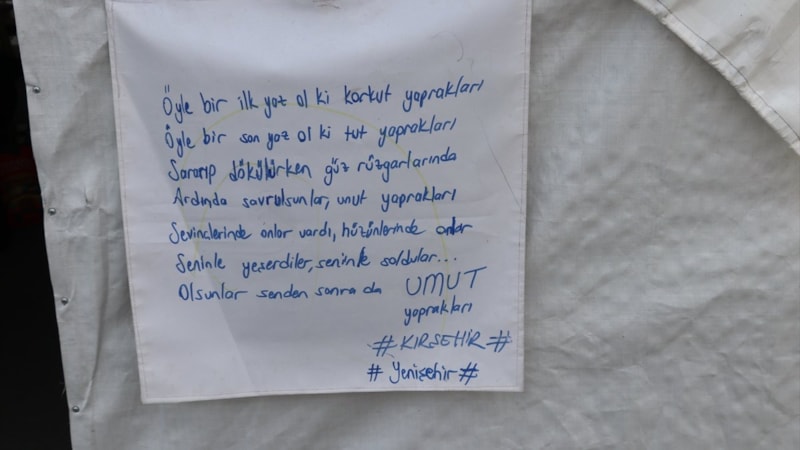 Öyle bir ilk yaz ol ki korkut yaprakları
Öyle bir son yaz ol ki tut yaprakları
Sararıp dökülürken güz rüzgarlarında
Ardında savrulsunlar, unut yaprakları
Sevinclerinde onlar vardı, hüzünlerinde onlar
Seninle yeşerdiler, seninle soldular...
Olsunlar senden sonra da UMUT
yaprakları
#KIRŞEHİR#
#Yenişehir#